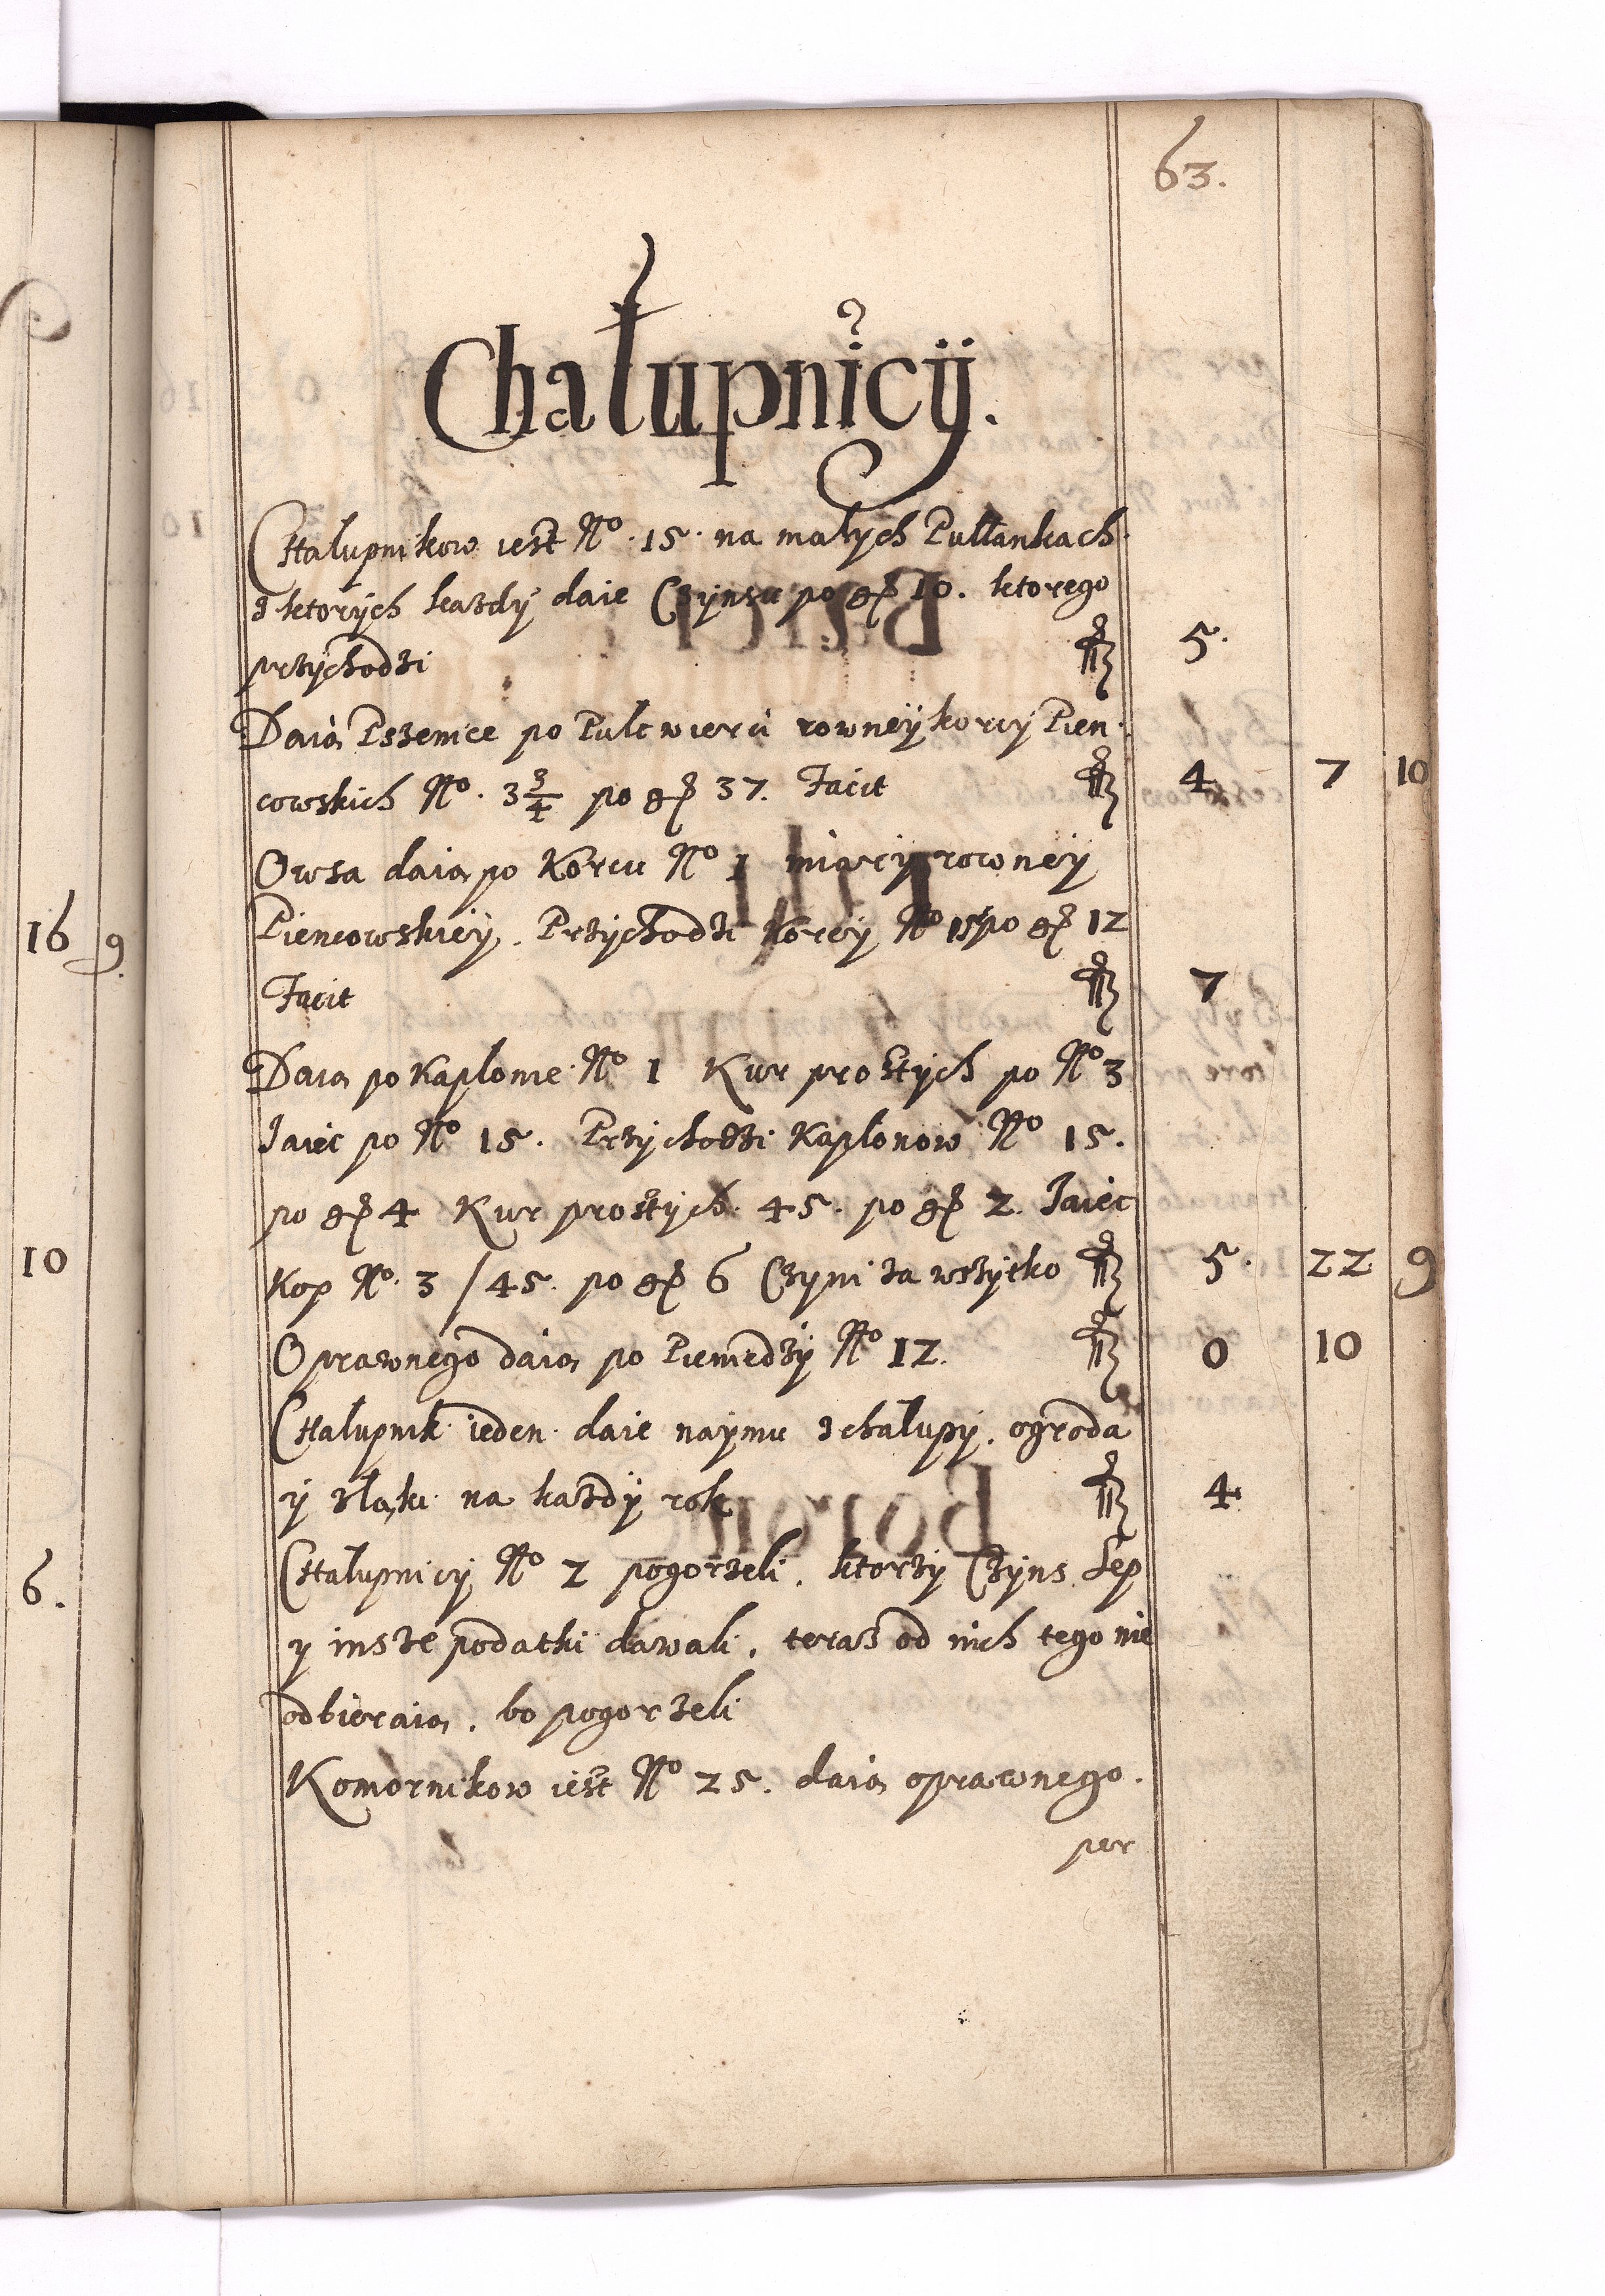 63.
Chałupnicÿ.
Chałupnikow iest No. 15. na małych Pułłankach.
z ktorych każdy daie Czynszu po gr 10. ktorego
przychodzi fl 5.
Daią Pszenice po Pułcwierci rowney korcy Pien-
cowskich No. 3 3/4 po gr 37. Facit fl 4 7 10
Owsa daią po Korcu No 1 miary rowney
Piencowskiey. Przychodzi Korcy No 15 po gr 12
Facit fl 7
Daią po Kapłonie No 1 Kur prostych po No 3
Jaiec po No 15. Przychodzi Kapłonow No 15.
po gr 4 Kur prostych 45. po gr 2. Jaiec
Kop No. 3 / 45. po gr 6 Czyni za wszytko fl 5. 22 9
Oprawnego daią po Pieniedzy No 12. fl 0 10
Chałupnik ieden daie naymu z chałupy, ogroda
y złąki na każdy rok fl 4
Chałupnicy No 2 pogorzeli, ktorzy Czyns Sep
y insze podatki dawali, teraz od nich tego nie
odbieraią, bo pogorzeli
Komornikow iest No 25. daią oprawnego.
per
16 9.
10
6.